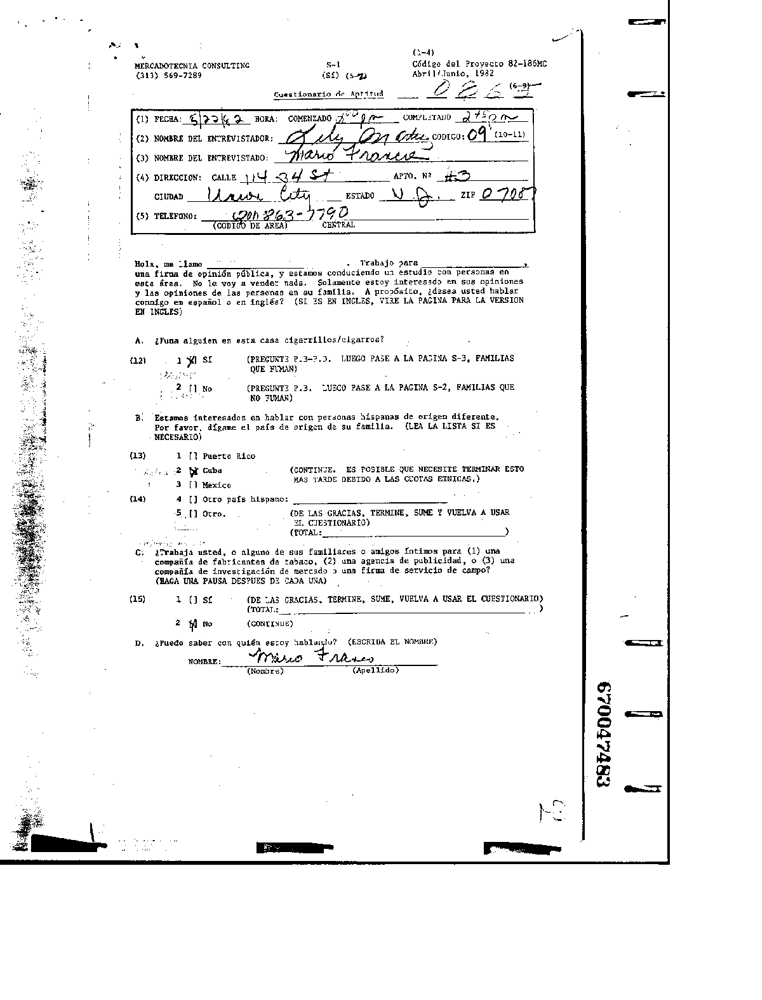 (1-4)
MERCADOTECNIA CONSULTING S-1 Código del Proyecto 82-186MC
(313) 569-7289 (Sí) (5- Abril/Junio, 1982
Cuestionario de Aptitud 086 (6-9)
(1) FECHA: HORA: COMENZADO COMPLETADO 2 45 pm
(2) NOMBRE DEL ENTREVISTADOR: Lily CODIGO: 09 (10-11)
(3) NOMBRE DEL ENTREVISTADO: Mario
(4) DIRECCION: CALLE 114 34 St APTO. Nº #3
CIUDAD Union City ESTADO N.J. ZIP 0708
(5) TELEFONO: (201) 863-7790
(CODIGO DE AREA) CENTRAL
Hola, me llamo . Trabajo para ,
una firma de opinión pública, y estamos conduciendo un estudio con personas en
esta área. No le voy a vender nada. Solamente estoy interesado en sus opiniones
y las opiniones de las personas en su familia. A propósito, ¿desea usted hablar
conmigo en español o en inglés? (SI ES EN INGLES, VIRE LA PAGINA PARA LA VERSION
EN INGLES)
A. ¿Fuma alguien en esta casa cigarrillos/cigarros?
(12) 1 [X] Sí (PREGUNTE P.B-P.D. LUEGO PASE A LA PAGINA S-3, FAMILIAS
QUE FUMAN)
2 [] No (PREGUNTE P.B. LUEGO PASE A LA PAGINA S-2, FAMILIAS QUE
NO FUMAN)
B. Estamos interesados en hablar con personas hispanas de origen diferente.
Por favor, dígame el país de origen de su familia. (LEA LA LISTA SI ES
NECESARIO)
(13) 1 [] Puerto Rico
2 [X] Cuba (CONTINUE. ES POSIBLE QUE NECESITE TERMINAR ESTO
3 [] Mexico MAS TARDE DEBIDO A LAS CUOTAS ETNICAS.)
(14) 4 [] Otro país hispano:
5 [] Otro. (DE LAS GRACIAS, TERMINE, SUME Y VUELVA A USAR
EL CUESTIONARIO)
(TOTAL: )
C. ¿Trabaja usted, o alguno de sus familiares o amigos íntimos para (1) una
compañía de fabricantes de tabaco, (2) una agencia de publicidad, o (3) una
compañía de investigación de mercado o una firma de servicio de campo?
(HAGA UNA PAUSA DESPUES DE CADA UNA)
(15) 1 [] Sí (DE LAS GRACIAS, TERMINE, SUME, VUELVA A USAR EL CUESTIONARIO)
(TOTAL: )
2 [X] No (CONTINUE)
D. ¿Puedo saber con quién estoy hablando? (ESCRIBA EL NOMBRE)
NOMBRE: Mario
(Nombre) (Apellido)
670047483